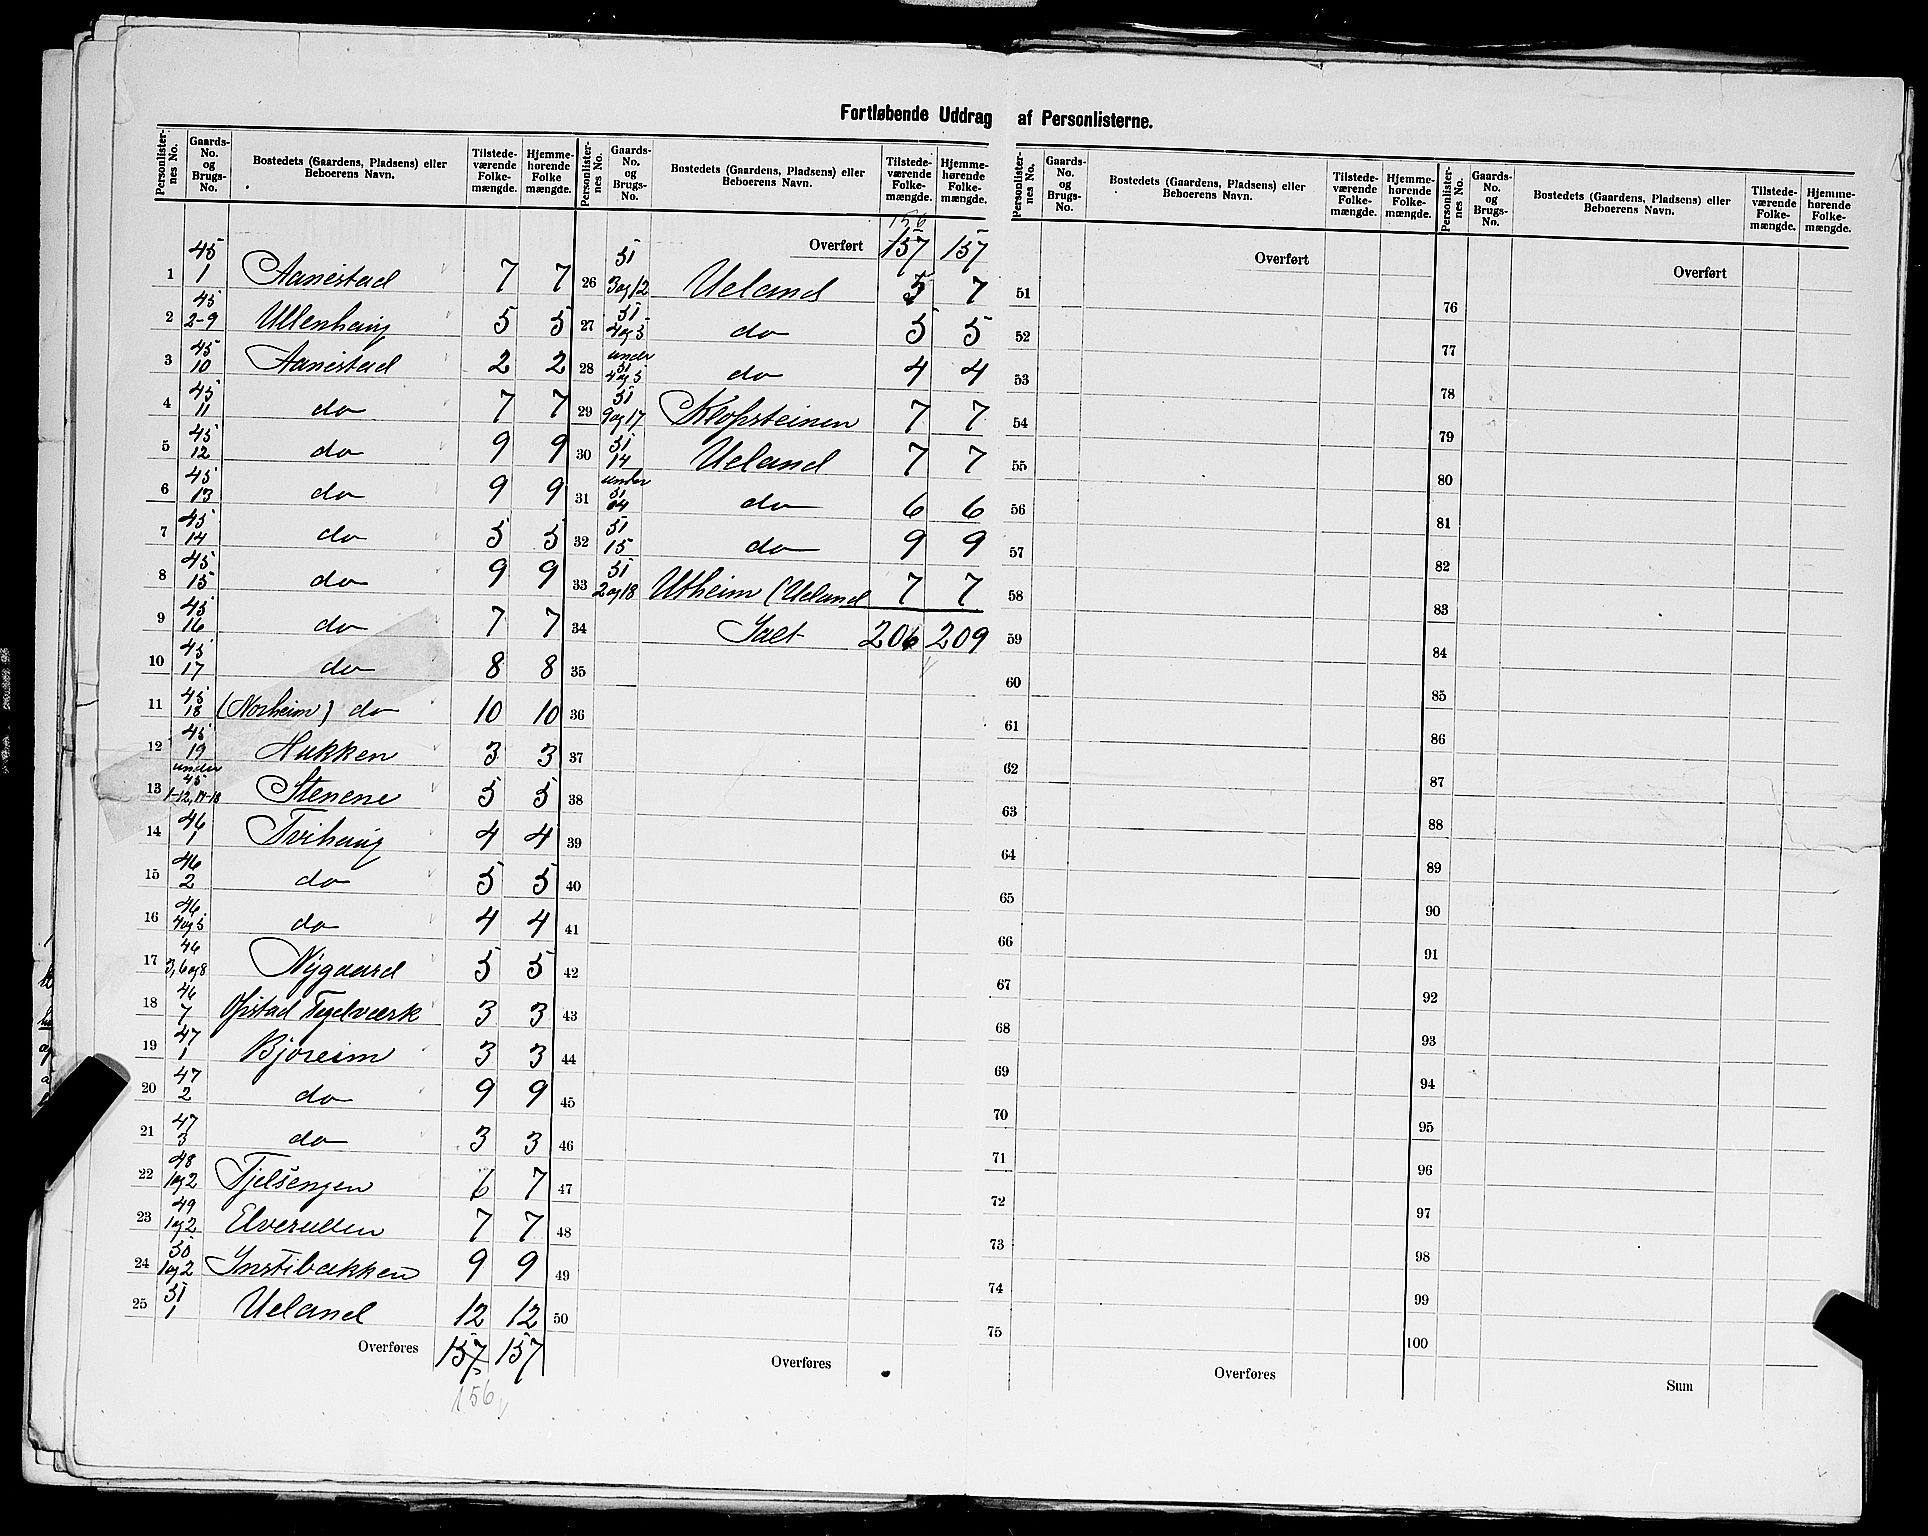 Fortløbende Uddrag af Personlisterne.
Personlister-nes No. | Gaards-No. og Brugs-No. | Bostedets (Gaardens, Pladsens) eller Beboerens Navn. | Tilstede-værende Folke-mængde. | Hjemme-hørende Folke mængde.
1 45/1 Aanestad 7 7
2 45/2-9 Ullenhaug 5 5
3 45/10 Aanestad 2 2
4 45/11 do 7 7
5 45/12 do 9 9
6 45/13 do 9 9
7 45/14 do 5 5
8 45/15 do 9 9
9 45/16 do 7 7
10 45/17 do 8 8
11 45/18 (Norheim) do 10 10
12 45/19 Hukken 3 3
13 under 45/1-12, 14-18 Stenene 5 5
14 46/1 Tvihaug 4 4
15 46/2 do 5 5
16 46/4og5 do 4 4
17 46/3, 6og8 Nygaard 5 5
18 46/7 Opstad Tegelværk 3 3
19 47/1 Bjoreim 3 3
20 47/2 do 9 9
21 47/3 do 3 3
22 48/1og2 Tjelsengen 6 7
23 49/1og2 7 7
24 50/1og2 9 9
25 51/1 Ueland 12 12
Overføres 157 157
156
Personlister-nes No. | Gaards-No. og Brugs-No. | Bostedets (Gaardens, Pladsens) eller Beboerens Navn. | Tilstede-værende Folke-mængde. | Hjemme-hørende Folke-mængde.
156
Overført 157 157
26 51/3og12 Ueland 5 7
27 51/4og5 do 5 5
28 under 51/4og5 do 4 4
29 51/9og17 Klopsteinen 7 7
30 51/14 Ueland 7 7
31 under 51/14 do 6 6
32 51/15 do 9 9
33 51/2og18 Utheim (Ueland 7 7
34 Ialt 206 209
35
36
37
38
39
40
41
42
43
44
45
46
47
48
49
50
Overføres
Personlister-nes No. | Gaards-No. og Brugs-No. | Bostedets (Gaardens, Pladsens) eller Beboerens Navn. | Tilstede-værende Folke-mængde. | Hjemme-hørende Folke-mængde.
Overført
51
52
53
54
55
56
57
58
59
60
61
62
63
64
65
66
67
68
69
70
71
72
73
74
75
Overføres
Personlister-nes No. | Gaards-No. og Brugs-No. | Bostedets (Gaardens, Pladsens) eller Beboerens Navn. | Tilstede-værende Folke-mængde. | Hjemme-hørende Folke-mængde.
Overført
76
77
78
79
80
81
82
83
84
85
86
87
88
89
90
91
92
93
94
95
96
97
98
99
100
Sum